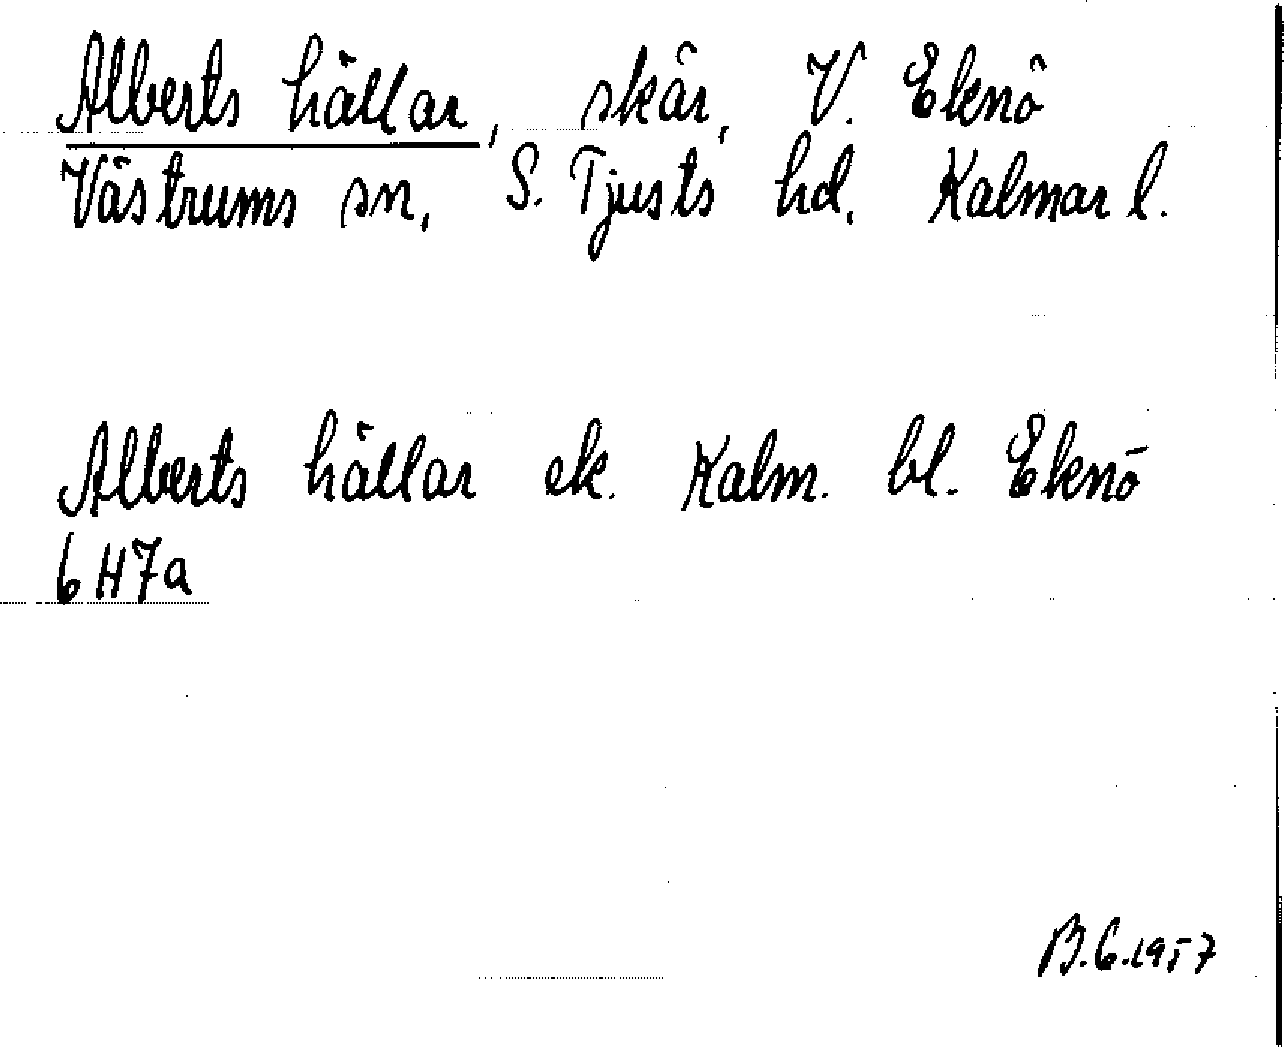 Alberts hällar, skär, V. Eknö
Västrums sn, S. Tjusts hd, Kalmar l.
Alberts hällar ek. Kalm. bl. Eknö
6 H7a
B.G.1957